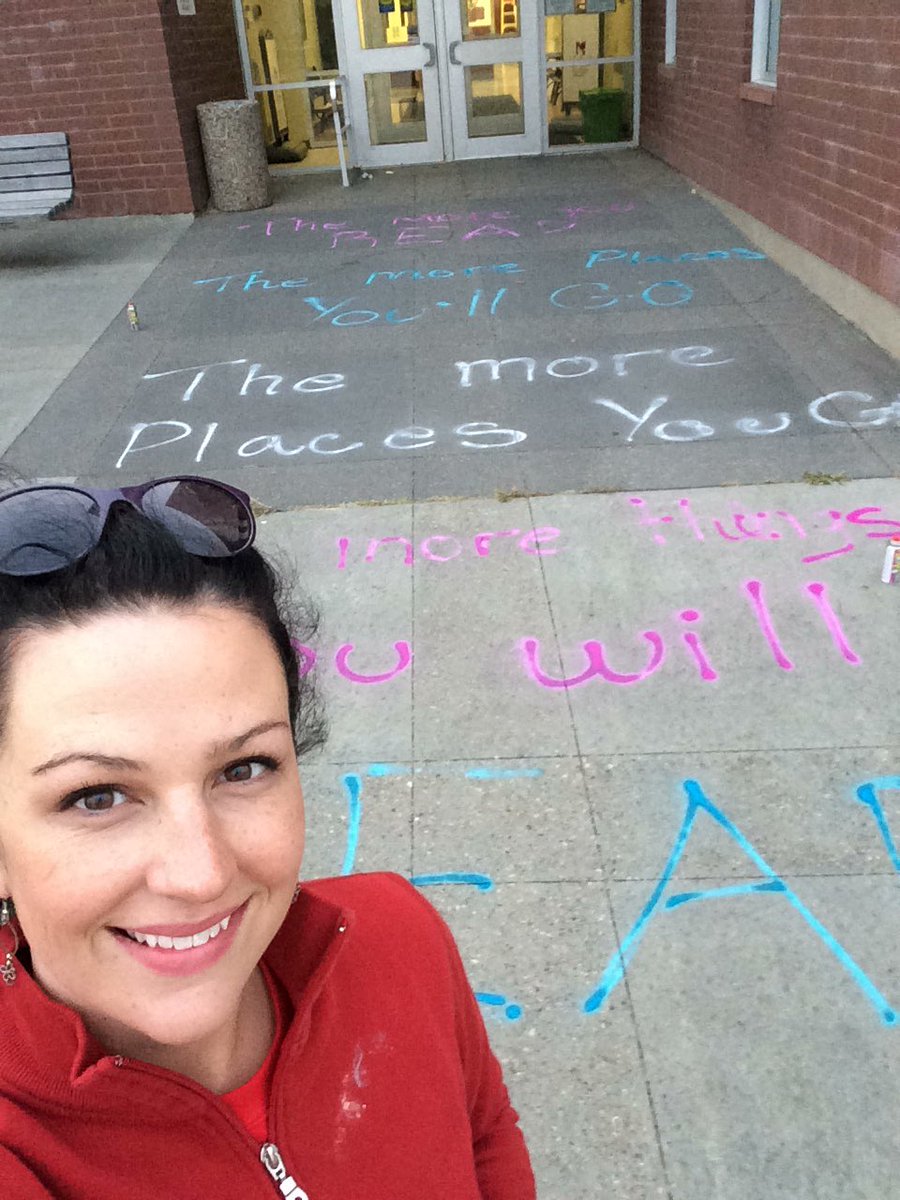 The more you
READ
The more Places
You'll GO
The more
Places You Go
more things
you will
EA